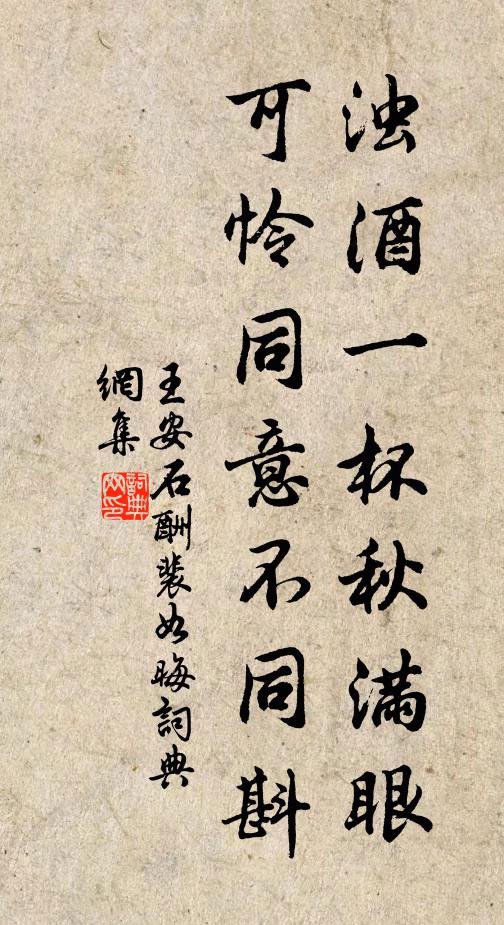 浊酒一杯秋满眼
可怜同意不同斟
王安石酬裴如晦詞典
網集
詞典網印